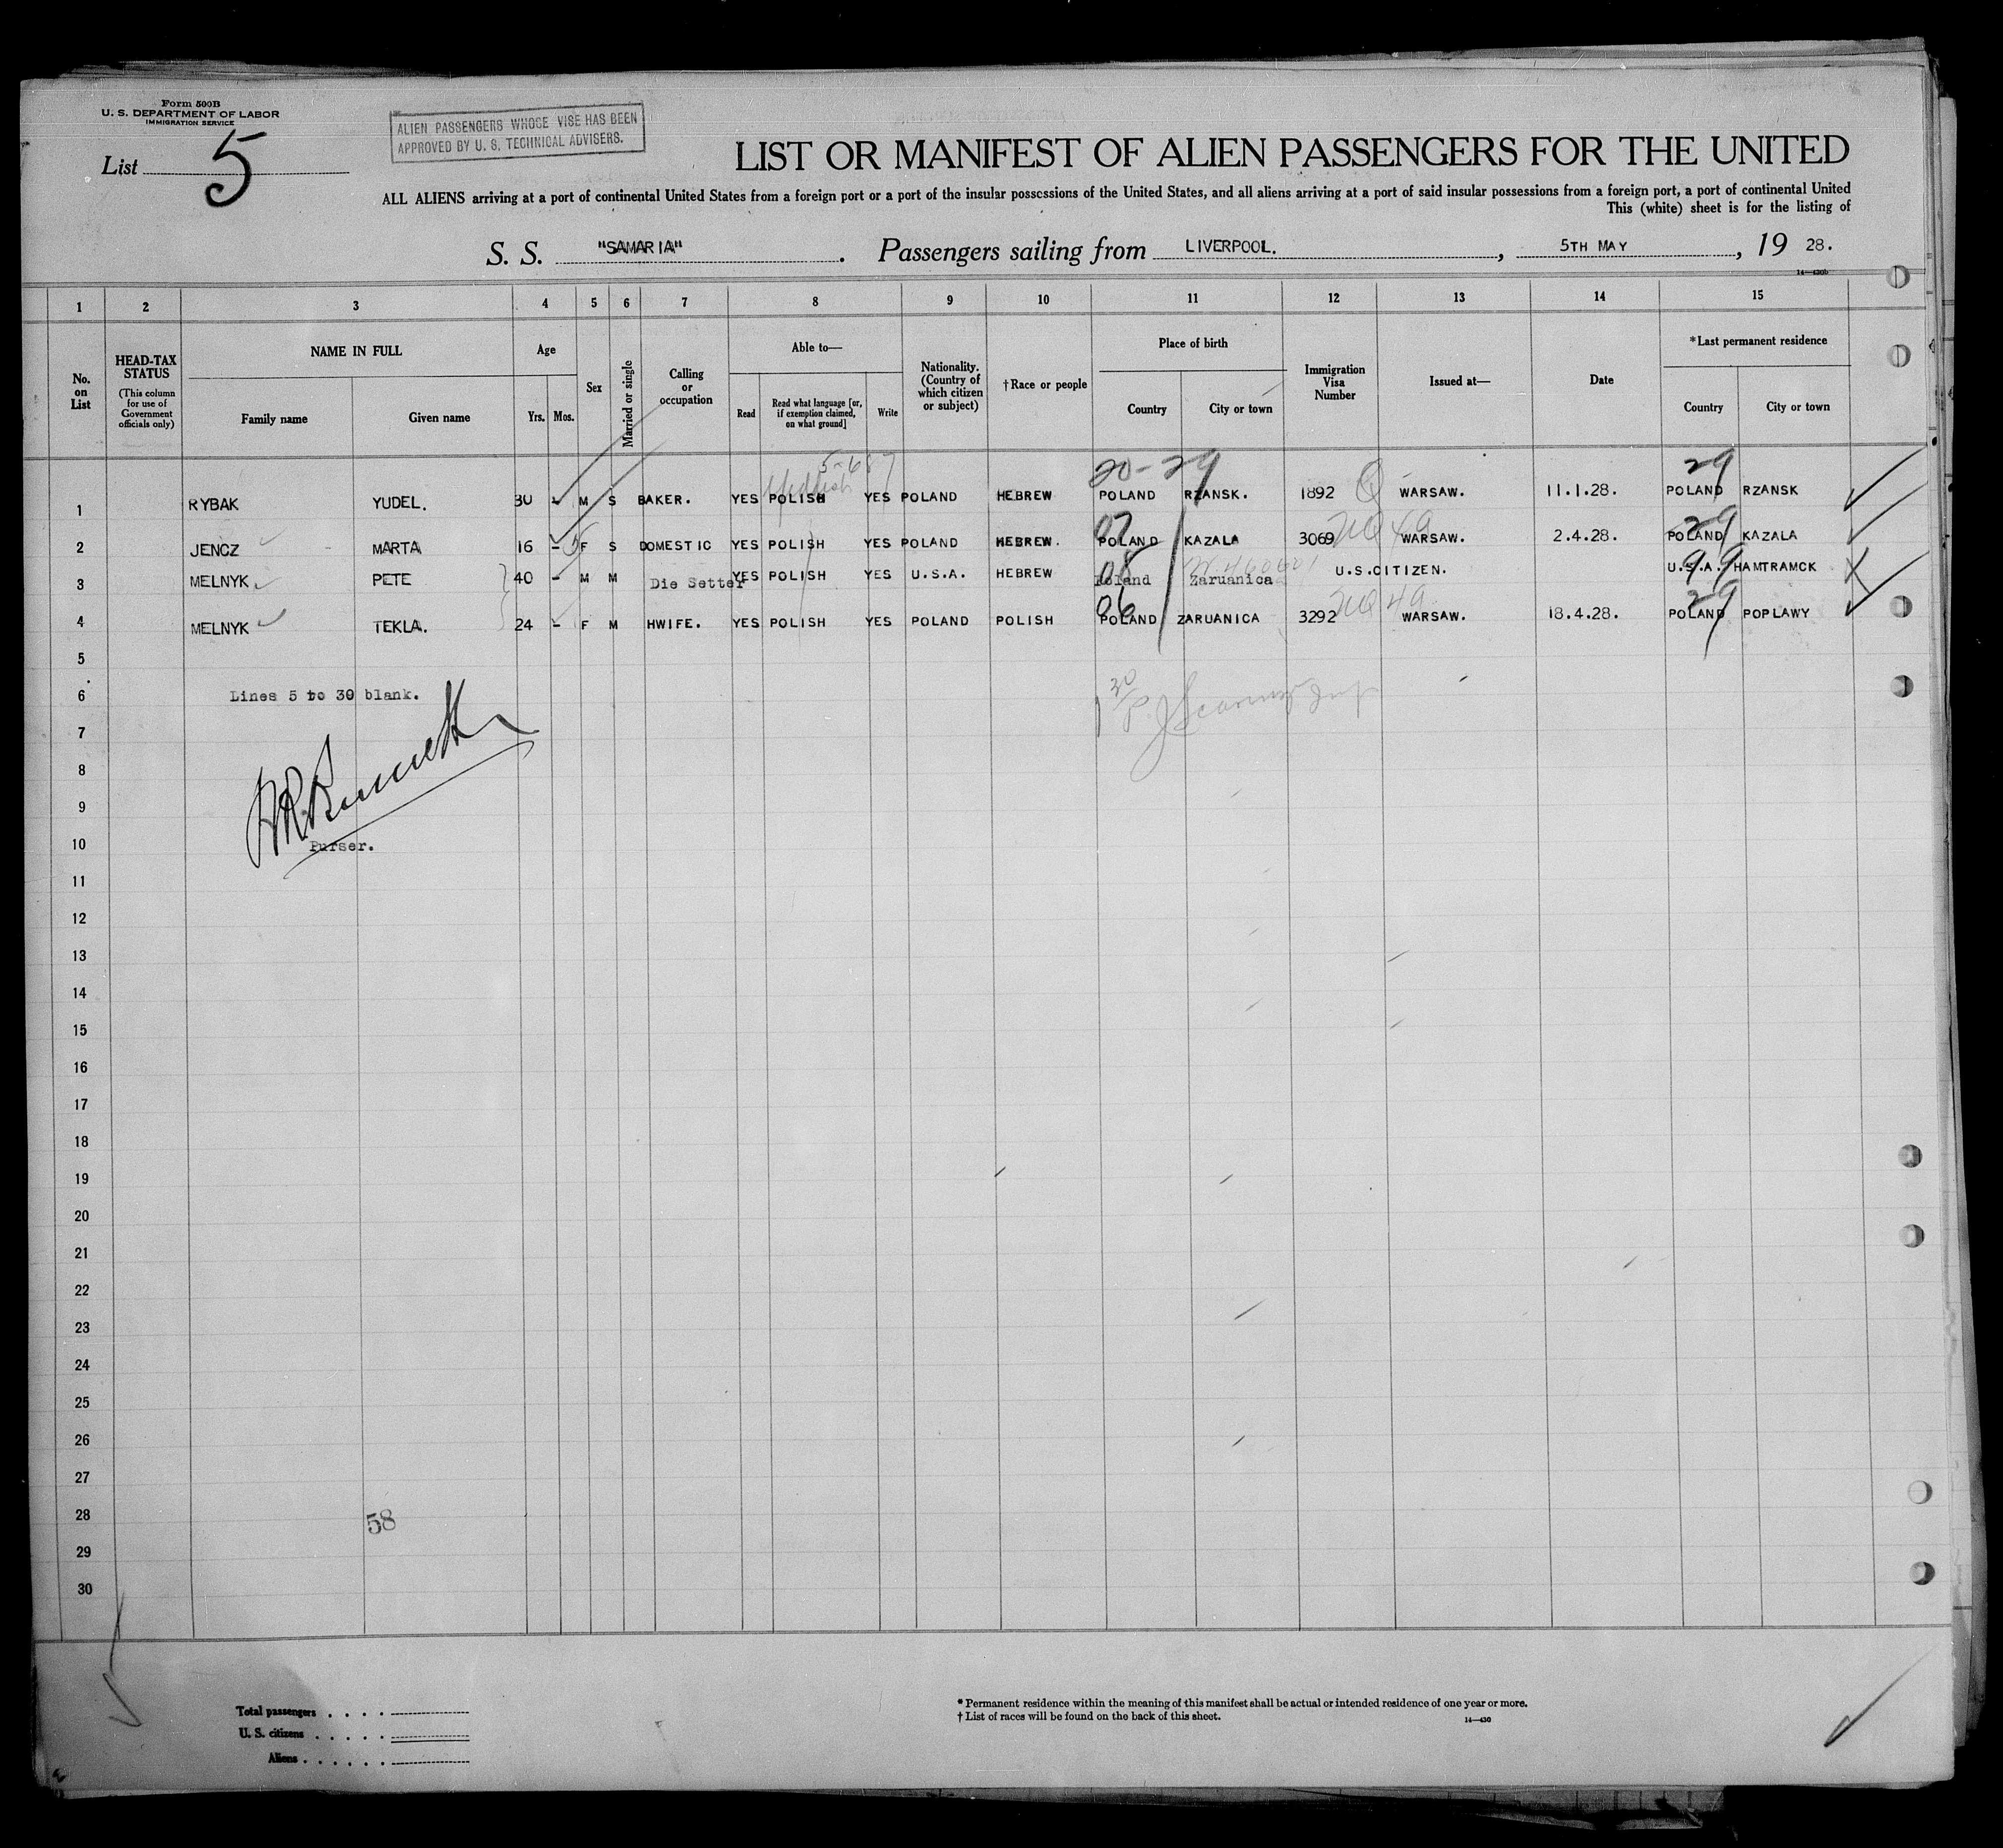 Form 500B
U. S. DEPARTMENT OF LABOR
IMMIGRATION SERVICE
List 5
ALIEN PASSENGERS WHOSE VISE HAS BEEN
APPROVED BY U. S. TECHNICAL ADVISERS.
LIST OR MANIFEST OF ALIEN PASSENGERS FOR THE UNITED
ALL ALIENS arriving at a port of continental United States from a foreign port or a port of the insular possessions of the United States, and all aliens arriving at a port of said insular possessions from a foreign port, a port of continental United
This (white) sheet is for the listing of
S. S. "SAMARIA". Passengers sailing from LIVERPOOL., 5TH MAY, 19 28.
14—430b
1 2 3 4 5 6 7 8 9 10 11 12 13 14 15
No. on List
HEAD-TAX STATUS (This column for use of Government officials only)
NAME IN FULL
Family name Given name
Age
Yrs. Mos.
Sex
Married or single
Calling or occupation
Able to—
Read
Read what language [or, if exemption claimed, on what ground]
Write
Nationality. (Country of which citizen or subject)
†Race or people
Place of birth
Country City or town
Immigration Visa Number
Issued at—
Date
*Last permanent residence
Country City or town
20-29 29
1 RYBAK YUDEL. 30 - M S BAKER. YES POLISH Yiddish YES POLAND HEBREW POLAND RZANSK. 1892 Q WARSAW. 11.1.28. POLAND RZANSK
07 29
2 JENCZ MARTA 16 - F S DOMESTIC YES POLISH YES POLAND HEBREW. POLAND KAZALA 3069 NQ 49 WARSAW. 2.4.28. POLAND KAZALA
08 99
3 MELNYK PETE 40 - M M Die Setter YES POLISH YES U.S.A. HEBREW Poland Zaruanica U.S.CITIZEN. U.S.A. HAMTRAMCK
06 29
4 MELNYK TEKLA. 24 - F M HWIFE. YES POLISH YES POLAND POLISH POLAND ZARUANICA 3292 NQ 49 WARSAW. 18.4.28. POLAND POPLAWY
5
6 Lines 5 to 30 blank.
7
8
9
10 Purser.
11
12
13
14
15
16
17
18
19
20
21
22
23
24
25
26
27
28 58
29
30
Total passengers . . . .
U. S. citizens . . . . .
Aliens . . . . . .
* Permanent residence within the meaning of this manifest shall be actual or intended residence of one year or more.
† List of races will be found on the back of this sheet.
14—430